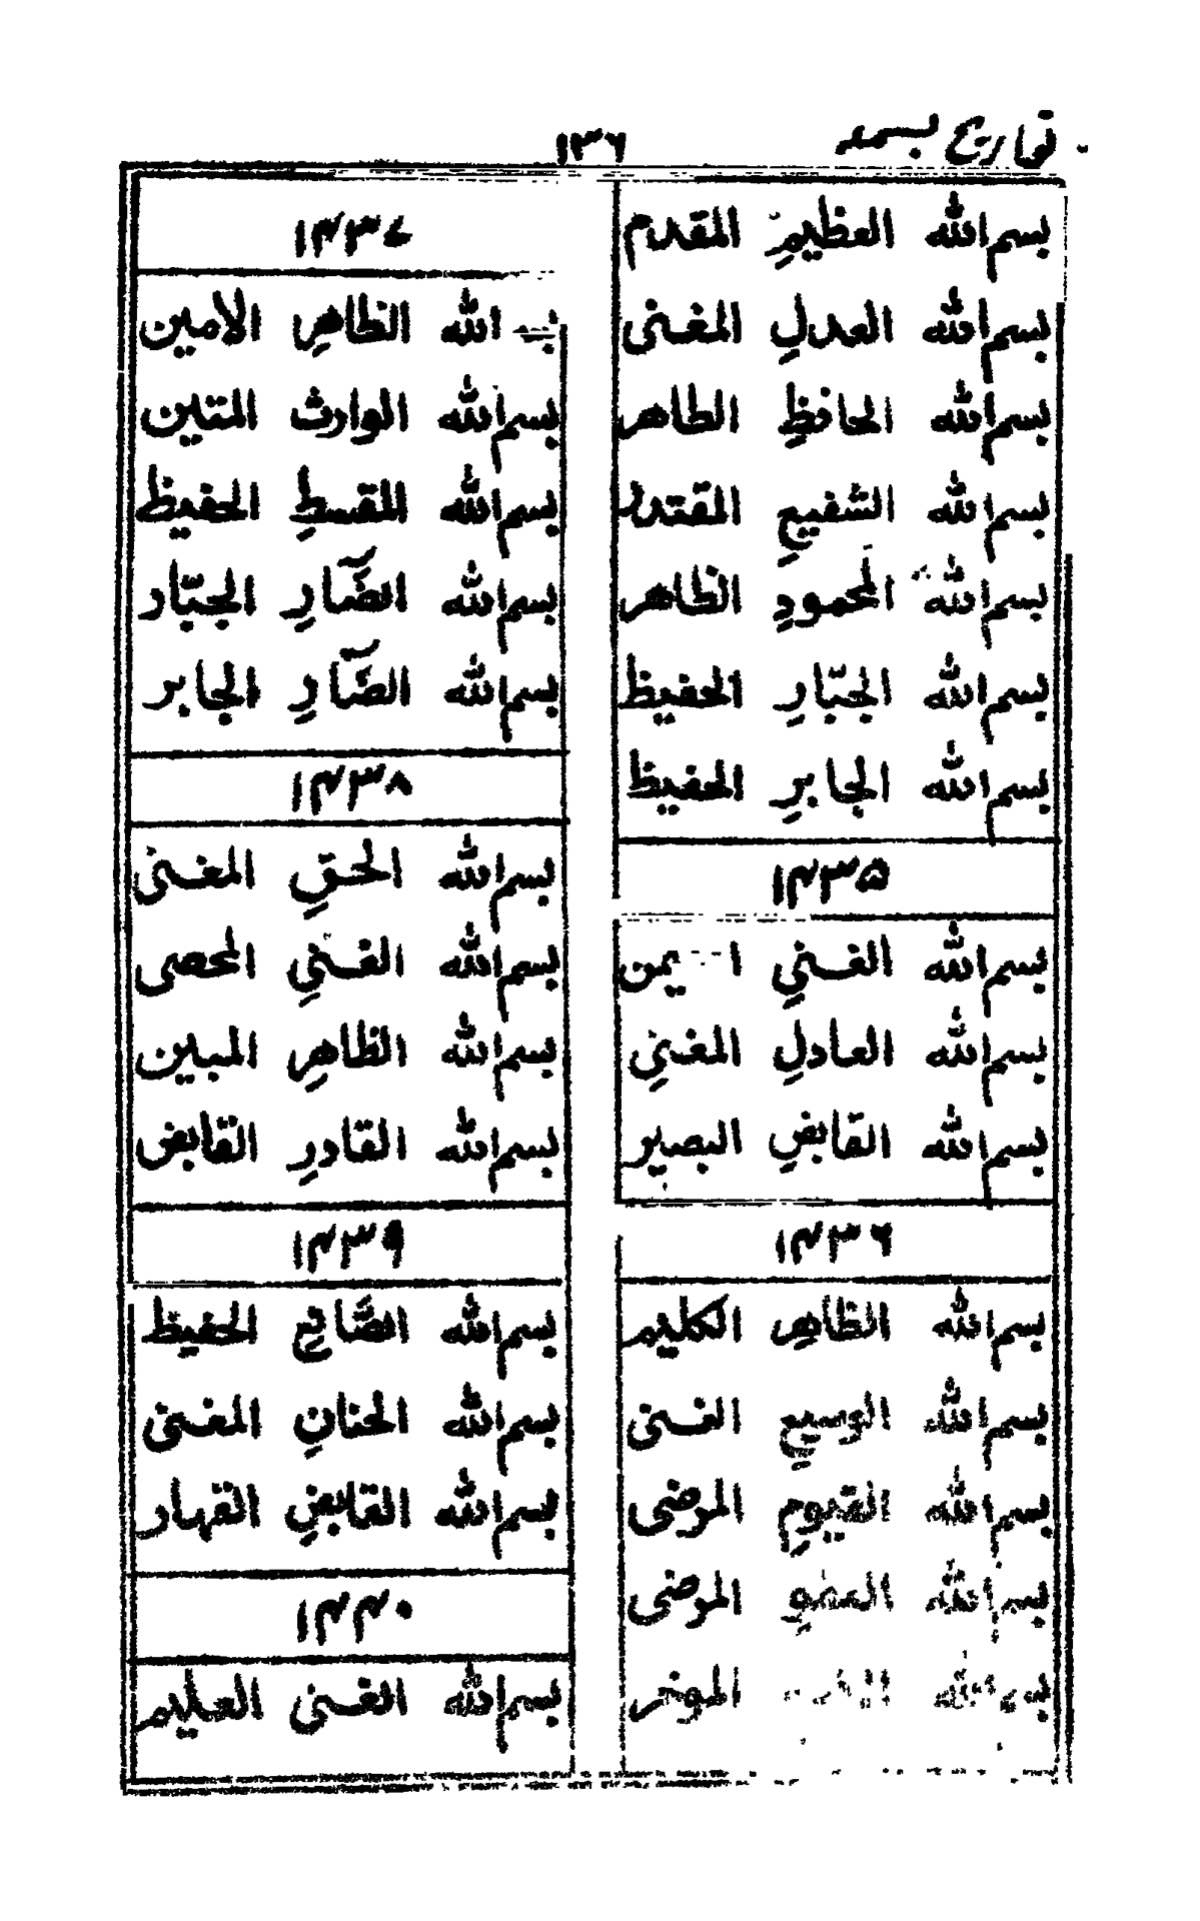 تواریخ بسمہ
۱۳۶
بسم الله العظيمِ المقدم
بسم الله العدلِ المغنى
بسم الله الحافظِ الطاهر
بسم الله الشفيعِ المقتدر
بسم الله المحمودِ الظاهر
بسم الله الجبّارِ الحفيظ
بسم الله الجابرِ الحفيظ
۱۴۳۵
بسم الله الغنىِ
بسم الله العادلِ المغنىِ
بسم الله القابضِ البصير
۱۴۳۶
بسم الله الظاهر الكليم
بسم الله الوسيعِ الغنى
بسم الله القيومِ المرضى
بسم الله العفوِ المرضى
الله الموخر
۱۴۳۷
الله الظاهرِ الامين
بسم الله الوارث المتين
بسم الله المقسطِ الحفيظ
بسم الله الضّآرِ الجبّار
بسم الله الضّآرِ الجابر
۱۴۳۸
بسم الله الحقِ المغنى
بسم الله الغنىِ المحصى
بسم الله الظاهرِ المبين
بسم الله القادرِ القابض
۱۴۳۹
بسم الله الصَّانع الحفيظ
بسم الله الحنانِ المغنى
بسم الله القابضِ القهار
۱۴۴۰
بسم الله الغنى العليم